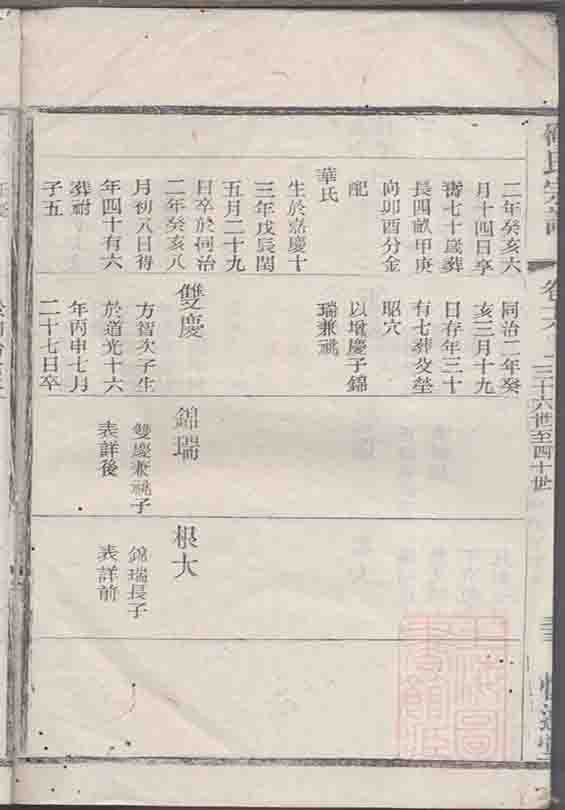 二年癸亥六
月十四日享
壽七十歲葬
長四畝甲庚
向卯酉分金
配
華氏
生於嘉慶十
三年戊辰閏
五月二十九
日卒於同治
二年癸亥八
月初八日得
年四十有六
葬祔
子五
同治二年癸
亥三月十九
日存年三十
有七葬父塋
昭穴
以墩慶子錦
瑞兼祧
雙慶
方智次子生
於道光十六
年丙申七月
二十七日卒
錦瑞
雙慶兼祧子
表詳後
根大
錦瑞長子
表詳前
氏宗
卷六
三十六世至四十世
上海圖
書館藏